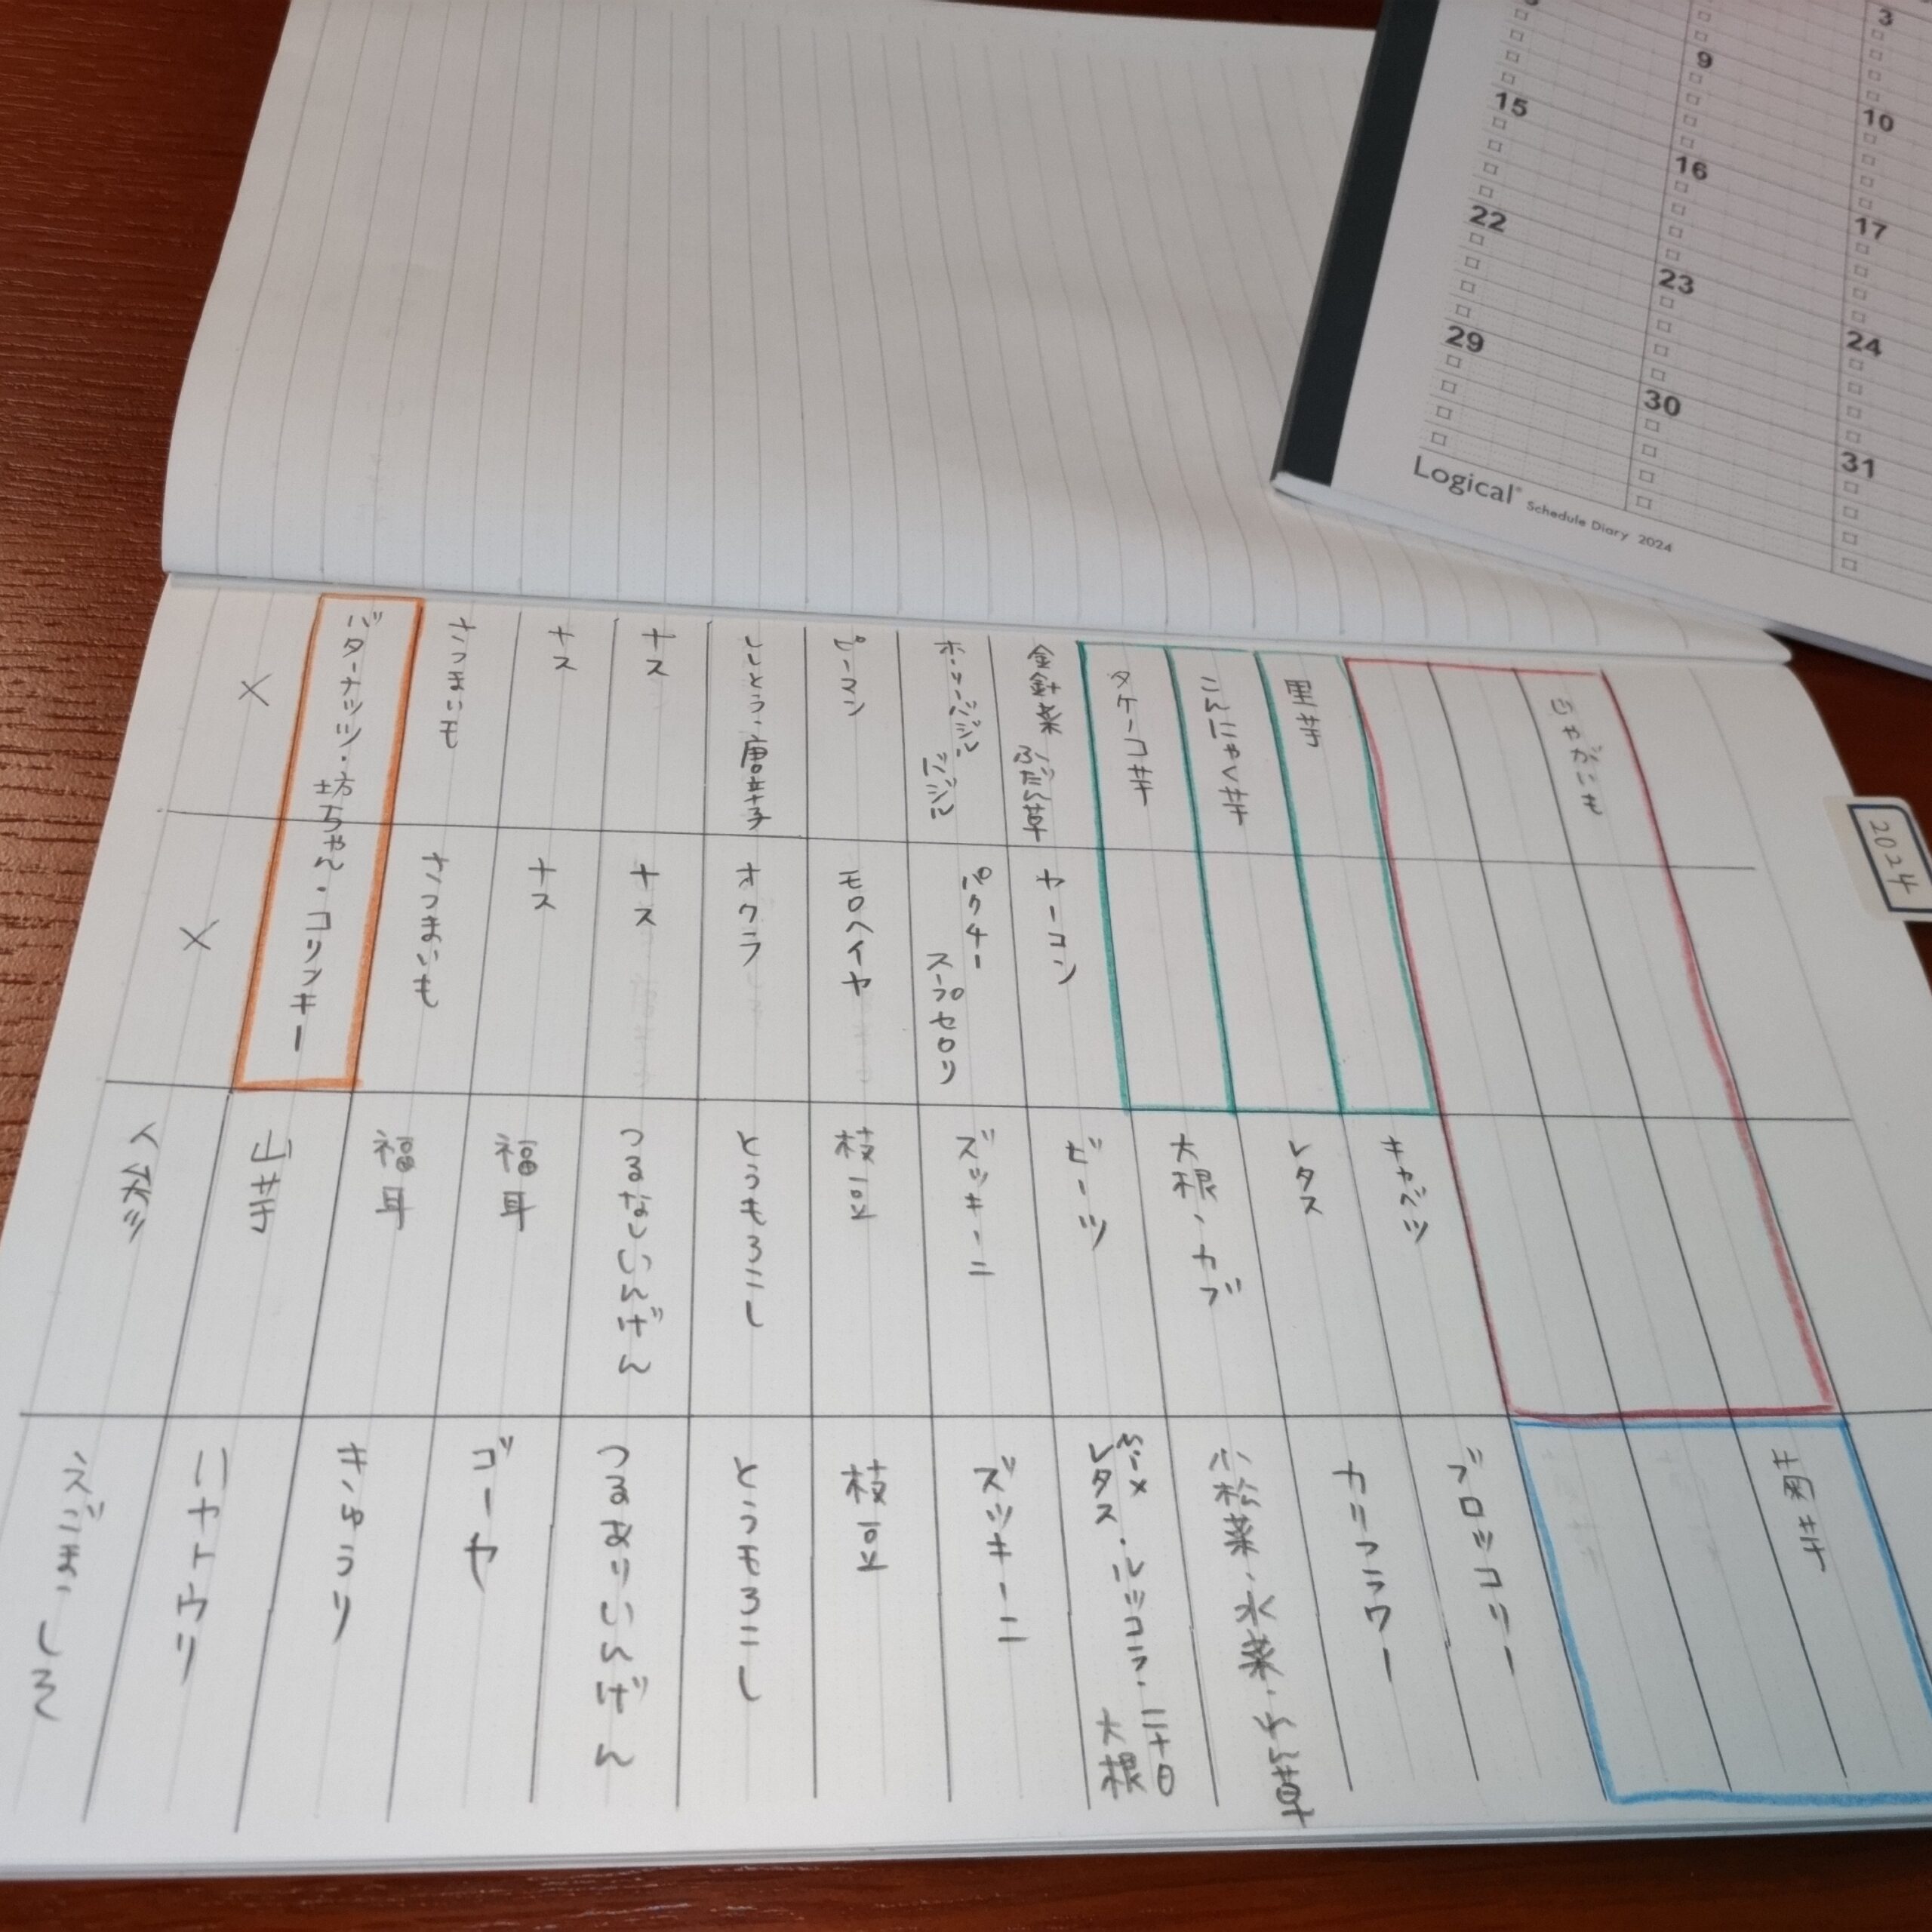 3
9
10
15
16
17
22
23
24
29
30
31
Logical
Schedule Diary 2024
2024
じゃがいも
里芋
こんにゃく芋
タケノコ芋
金針菜
ふだん草
ホーリーバジル
バジル
ピーマン
ししとう、唐辛子
ナス
ナス
さつまいも
バターナッツ・坊ちゃん・コリンキー
×
ヤーコン
パクチー
スープセロリ
モロヘイヤ
オクラ
ナス
ナス
さつまいも
×
キャベツ
レタス
大根、カブ
ビーツ
ズッキーニ
枝豆
とうもろこし
つるなしいんげん
福耳
福耳
山芋
人参
菊芋
ブロッコリー
カリフラワー
小松菜、水菜、ほうれん草
レタス・ルッコラ・二十日
大根
ズッキーニ
枝豆
とうもろこし
つるありいんげん
ゴーヤ
きゅうり
ハヤトウリ
えごま、しそ